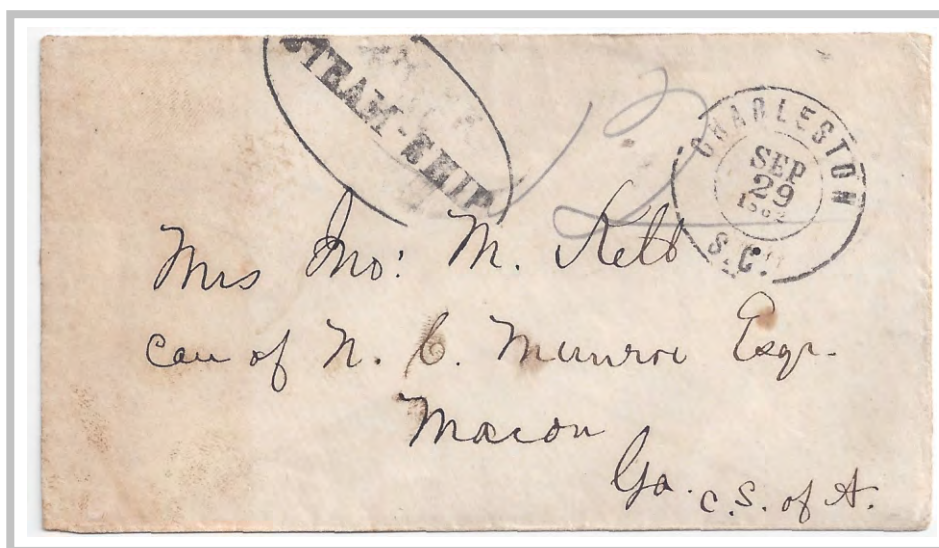 STEAM-SHIP
12
CHARLESTON
SEP
29
S.C.
Mrs Jno: M. Kell
Care of N. C. Munroe Esqr.
Macon
Ga. C. S. of A.